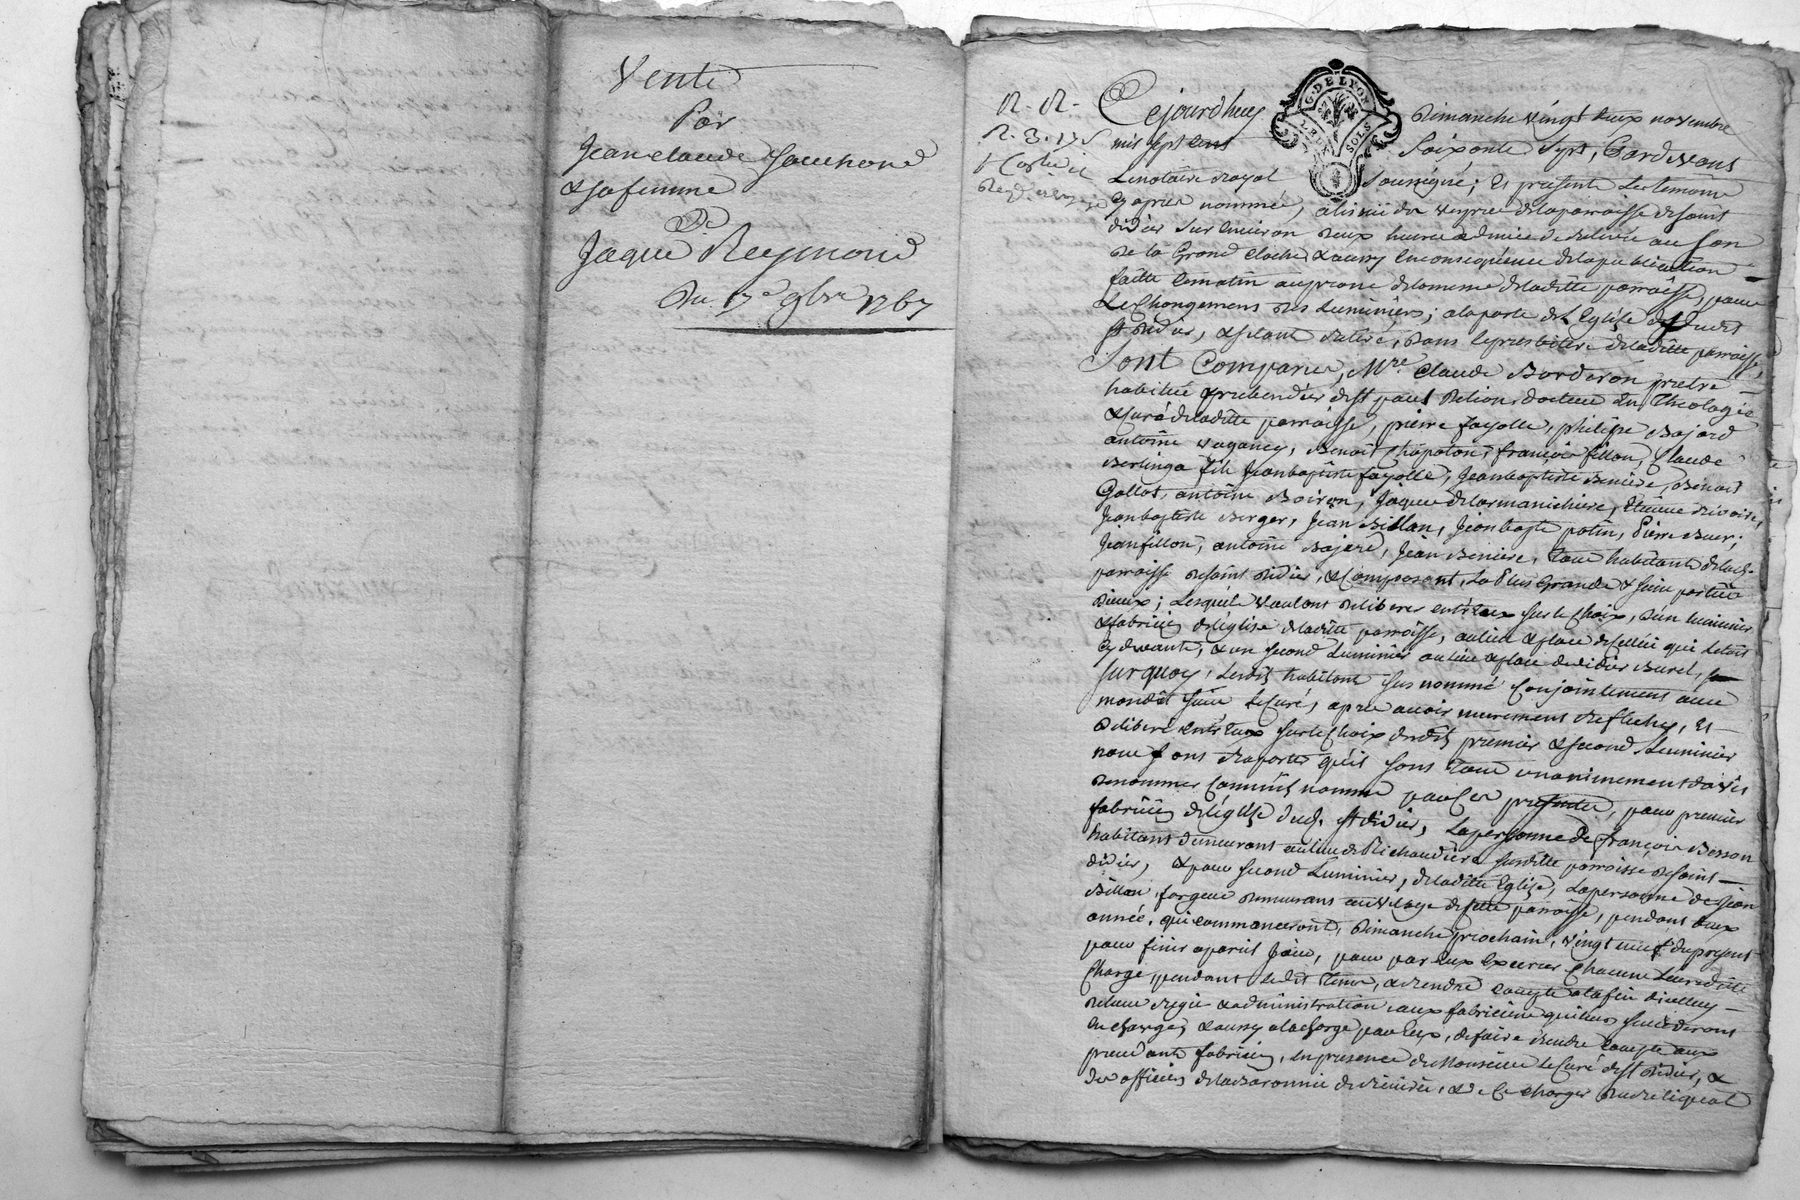 Vente
Par
Jean claude
& sa femme
A
Jaque Reymond
Du 17e 9bre 1767
R. R.
R. 3. 17 s
G. DE LYON
DEUX SOLS
Cejourdhuy Dimanche vingt deux novembre
mil sept cens Soixante Sept, Pardevant
Le notaire Royal soussigné; Et presents Les temoins
cy apres nommés, a la parroisse de saint
didier sur environ deux heures de relevée au son
de la Grand Cloche & aussy en consequence de la publication
faitte ce matin au prone de la messe de laditte parroisse, pour
Le Changement des Luminiers; a la porte de L'Eglise dudit
st didier, & dans le presbitere de laditte parroisse,
Sont Comparus, Mre Claude Borderon pretre
habitué & prebendier de st paul de lion, docteur En Theologie
& Curé de laditte parroisse, pierre fayolle, philipe Bajard
antoine vaganey, Benoit Chapoton, françois fillon, Claude
Berlinga fils Jean baptiste fayolle, Jean baptiste Beniere, Benoit
Gallot, antoine Boiron, Jaque de Larmanichiere, Etienne
Jean baptiste Berger, Jean Billon, Jean bapte potin, Pierre
Jean fillon, antoine Bajard, Jean Beniere, Tous habitants de lad.
parroisse de saint didier, & Composant La Plus Grande & saine partie
d'iceux; Lesquels voulant deliberer entr'eux sur le Choix, d'un luminier
& fabricien de l'eglise de laditte parroisse, au lieu & place de Celluy qui L'etoit
cy devant, & un second Luminier au lieu & place de didier Burel,
sur quoy, Lesdits habitans sus nommés Conjointement avec
mondit sieur Le Curé, apres avoir murement Reflechy, Et
deliberé entr'eux sur le Choix desdits premier & second Luminier
nous ont Raporté qu'ils sont Tous unanimement d'avis
de nommer Comme ils nomment par Ces presentes, pour premier
fabricien de l'église dud. st didier, La personne de françois Besson
habitant demeurant au lieu de Richaudiere susditte parroisse de saint
didier, & pour second Luminier, de laditte Eglise, La personne de jean
Billon, forgeur demeurant au vilage de cette parroisse, pendant deux
années, qui commanceront, Dimanche prochain, vingt neuf du present
pour finir a pareil Jour, pour par Eux Exercer Chacun Leur ditte
Charge pendant Ledit Tems, & rendre compte a la fin d'icelluy
de leur Regie & administration aux fabriciens qui leur succederont
En charge, & aussy a la charge par Eux, de faire Rendre Compte aux
precedents fabriciens, en presence de Monsieur Le Curé de st didier, &
des officiers de la Baronnie de Riverie, & de Se Charger du Reliquat